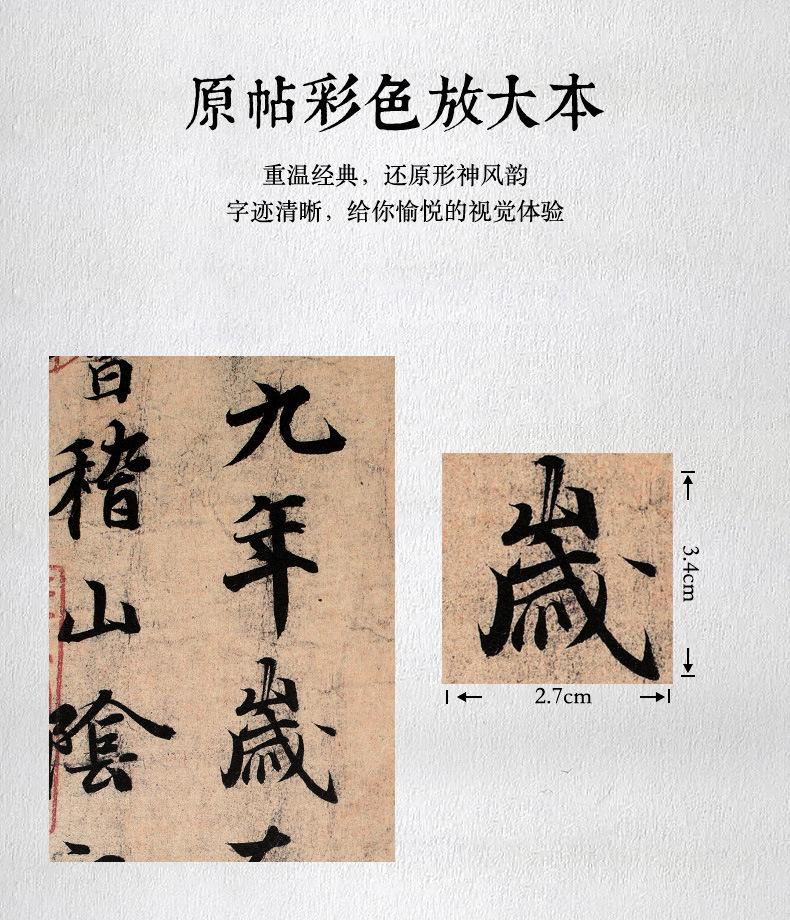 原帖彩色放大本
重温经典，还原形神风韵
字迹清晰，给你愉悦的视觉体验
九年歲在
稽山陰
歲
3.4cm
2.7cm